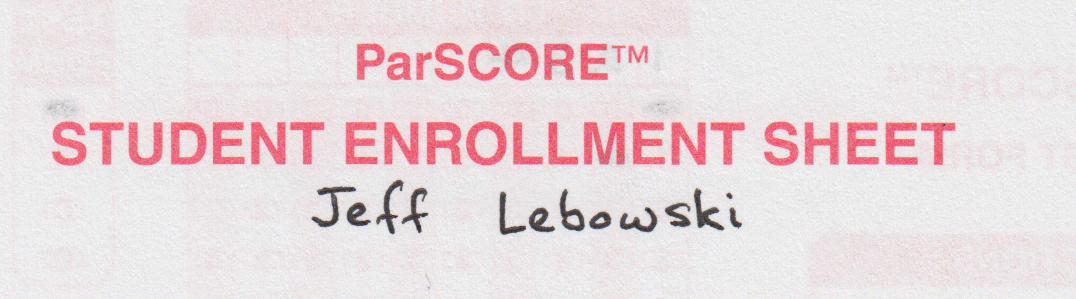 ParSCORE™
STUDENT ENROLLMENT SHEET
Jeff Lebowski